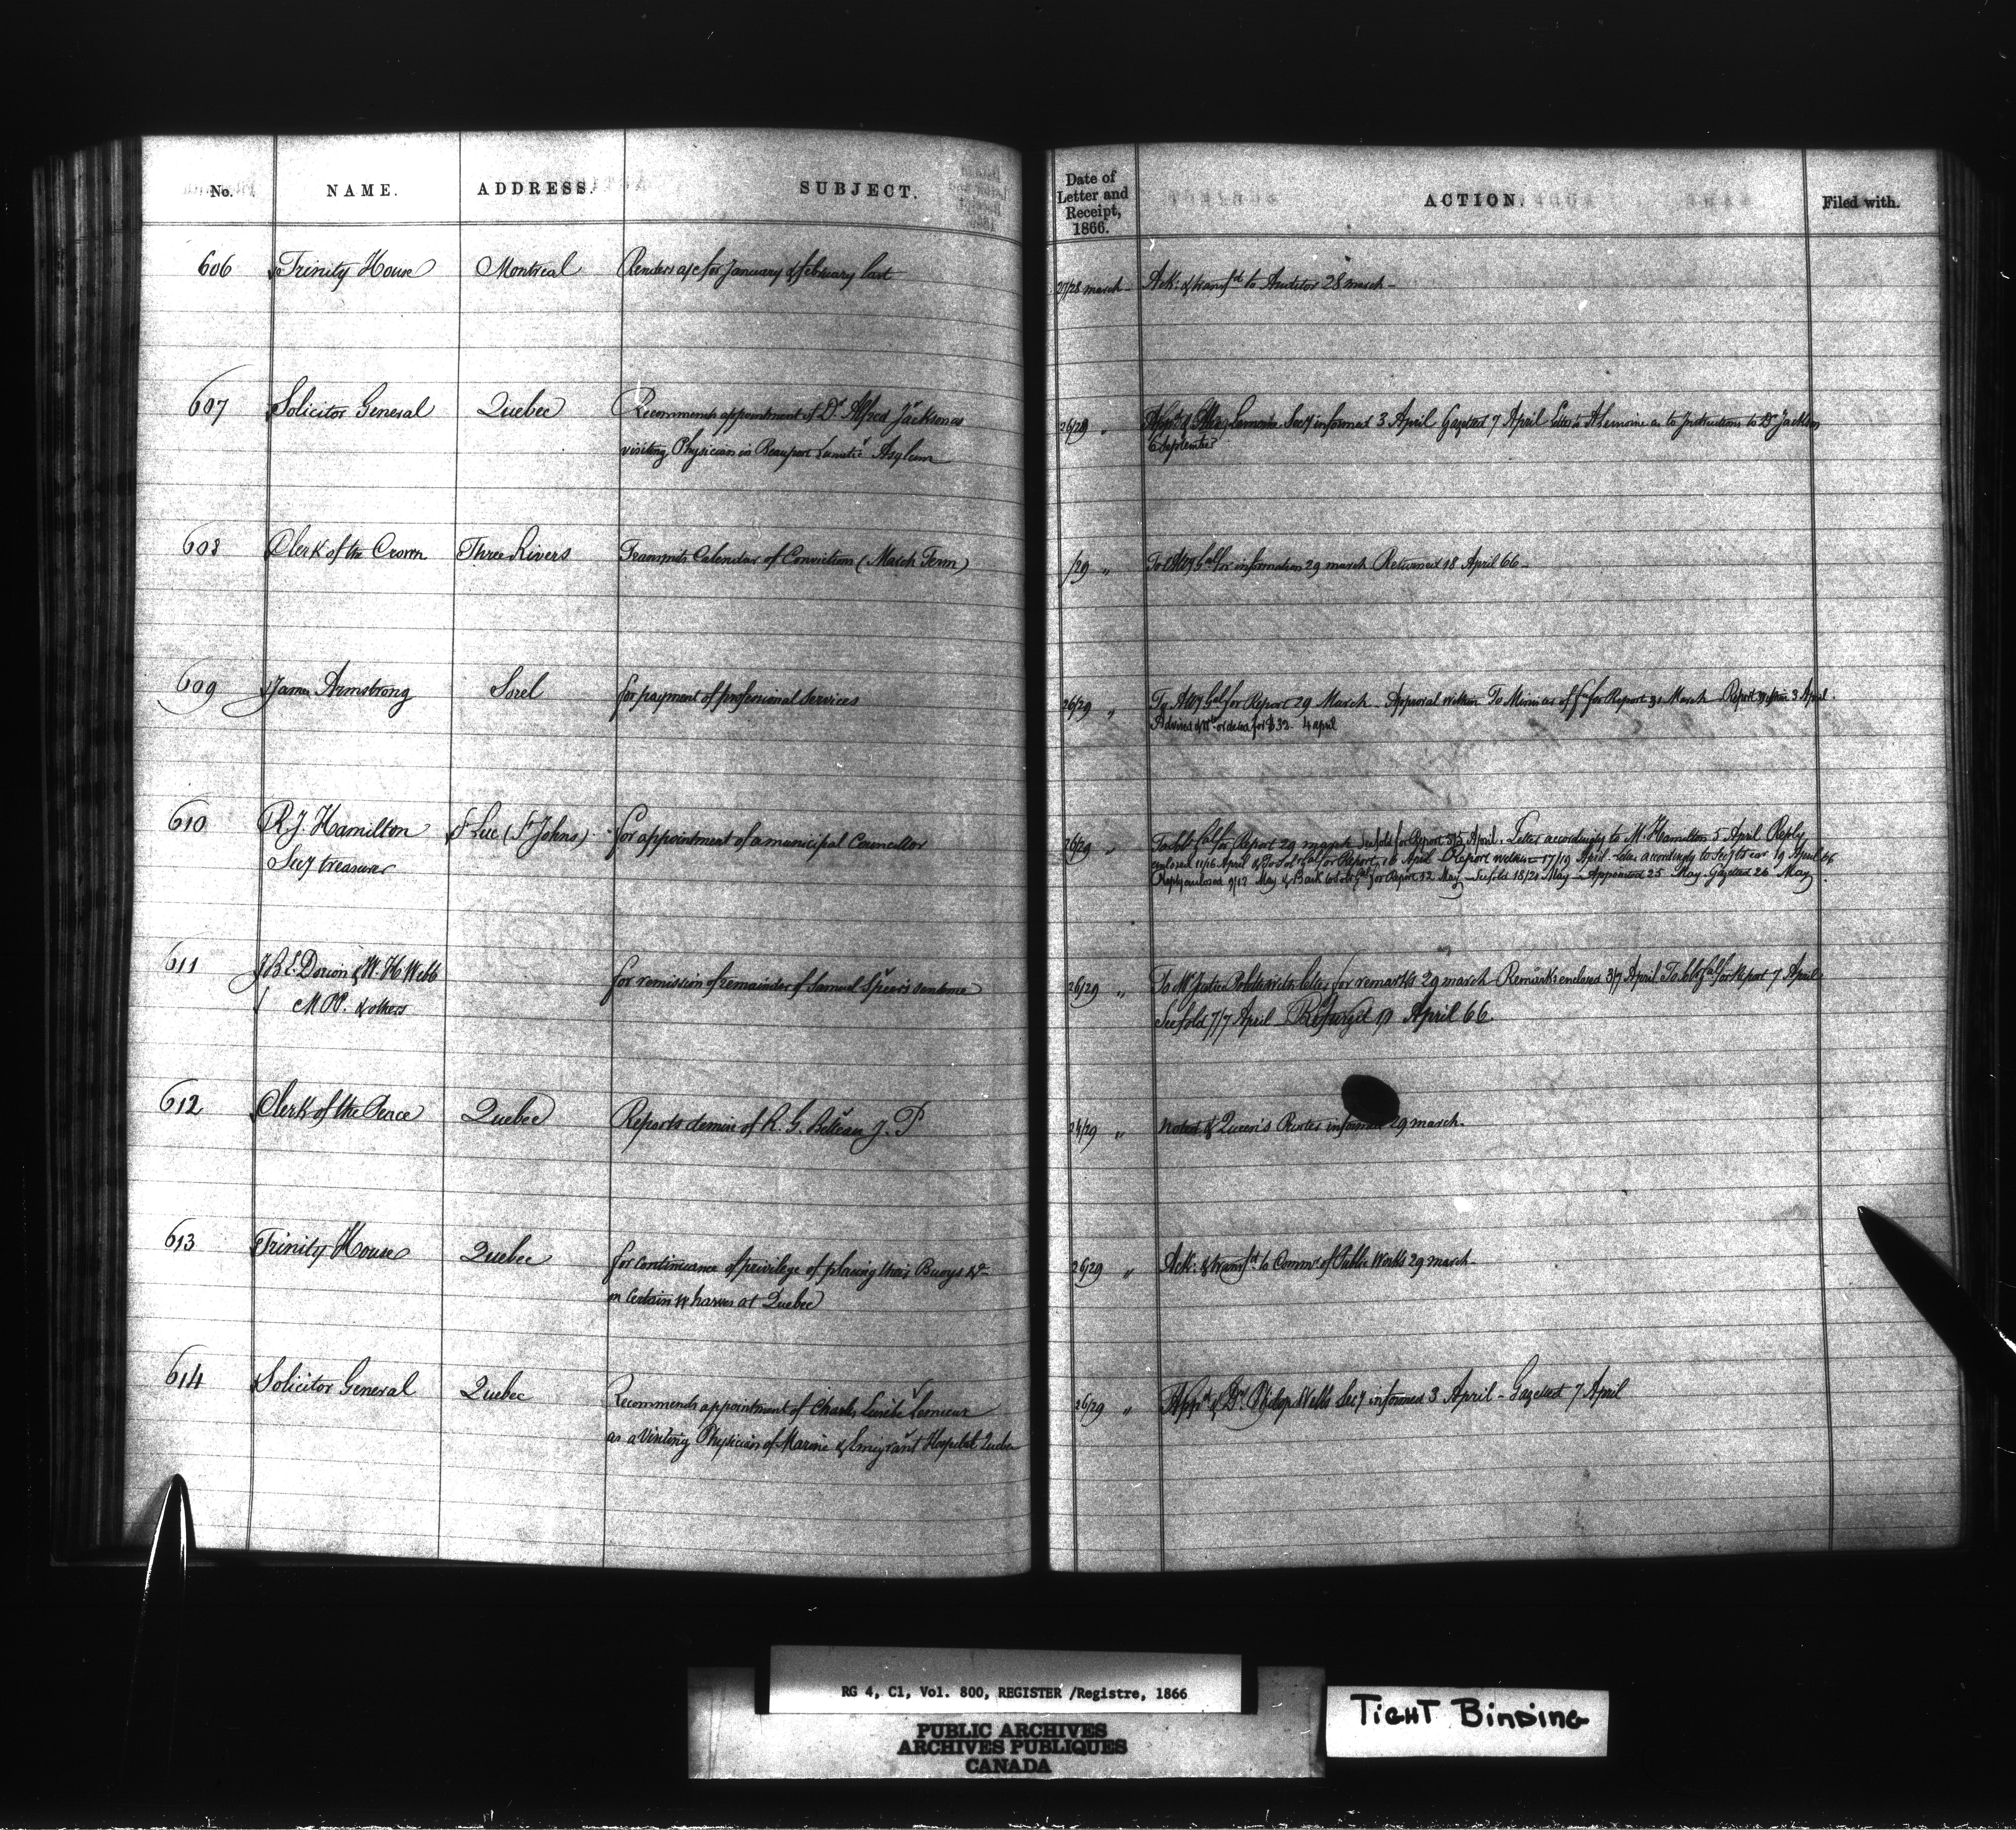 No. NAME. ADDRESS. SUBJECT.
Date of Letter and Receipt, 1866. ACTION. Filed with.
606 Trinity House Montreal Renders a/c for January & february last 27/28 march - Ack: & transfd to Auditor 28 march -
607 Solicitor General Quebec Recommends appointment of Dr Alfred Jackson as 26/29 " Lemoine Secy informed 3 April Gazetted 7 April Letter to A Lemoine as to Instructions to Dr Jackson
visiting Physician in Beauport Lunatic Asylum 6 September
608 Clerk of the Crown Three Rivers Transmits Calendar of Convictions (March Term) /29 " To Atty Gal for information 29 march Returned 18 April 66 -
609 James Armstrong Sorel for payment of professional services 26/29 " To Atty Gal for Report 29 March - Approval within To Minister of for Report 31 March - Report within 3 April.
Advised & Wt ordered for $32. 4 april
610 R. J. Hamilton St Luc (St Johns) for appointment of a municipal Councillor 26/29 " To Sol: Gal for Report 29 march See fold for Report 5/5 April. Letter accordingly to M. Hamilton 5 April Reply
Secy treasurer enclosed 11/16 April & To Sol: Gal for Report, 16 April - Report within 17/19 April. Letter accordingly to Secy trear 19 April 66
Reply enclosed 9/17 May & Back to Sol: Gal for Report 12 May - See fold 18/21 May - Appointed 25 May. Gazetted 26 May.
611 J B E. Dorion & W. H Webb for remission of remainder of Samuel Spier's sentence 26/29 " To Mr Justice for remarks 29 march - Remarks enclosed 3/7 April To Sol: Gal for Report 7 April
M PP. & others See fold 7/7 April - Refused April 66
612 Clerk of the Peace Quebec Reports demise of R. G. Belleau J. P 24/29 " Noted & Queen's Printer informed 29 march -
613 Trinity House Quebec for continuance of privilege of placing their Buoys &- 26/29 " Ack: & transfd to Commr of Public Works 29 march -
on Certain wharves at Quebec
614 Solicitor General Quebec Recommends appointment of Charles Eusèbe Lemieux 26/29 " Appd & Dr Wells Secy informed 3 April - Gazetted 7 April
as a Visiting Physician of Marine & Emigrant Hospital Quebec
RG 4, C1, Vol. 800, REGISTER /Registre, 1866
PUBLIC ARCHIVES
ARCHIVES PUBLIQUES
CANADA
TIGHT BINDING